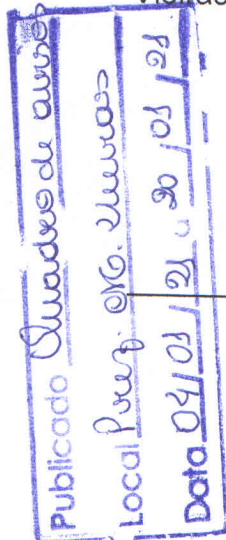 Publicado Quadro de avisos
Local Pref. M.
Data 04/01/21 a 20/01/21